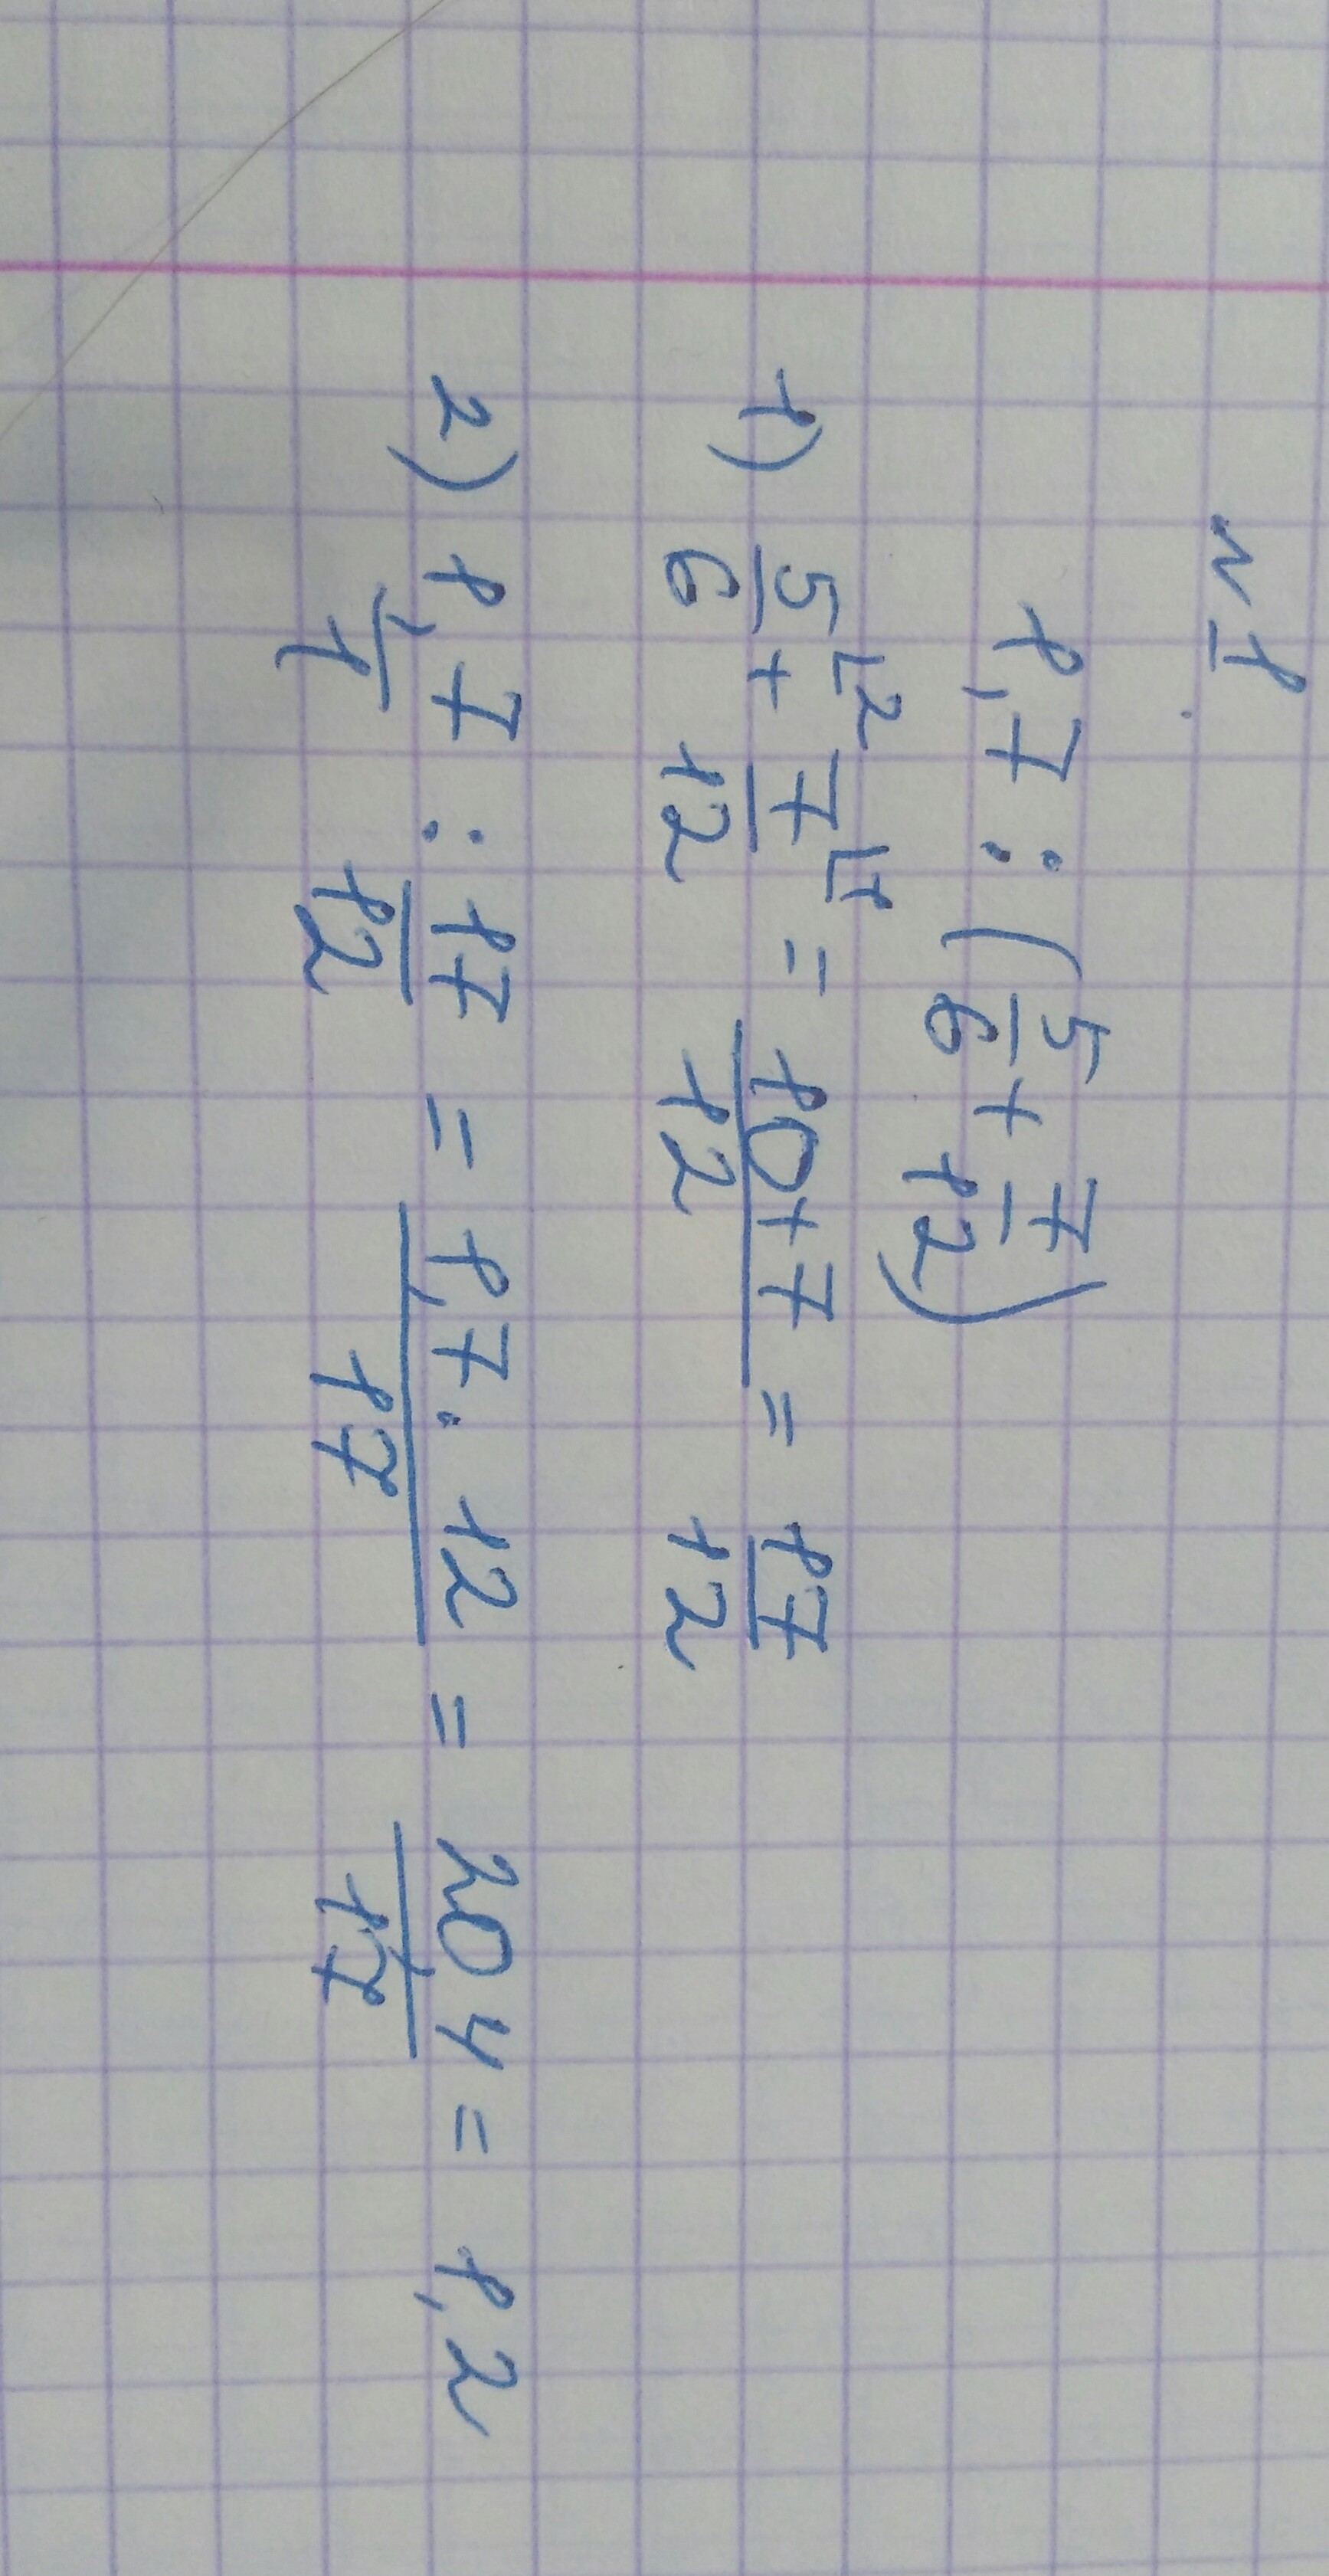 №1
1,7 : (5/6 + 7/12)
1) 5/6 ⌊2 + 7/12 ⌊1 = (10+7)/12 = 17/12
2) 1,7/1 : 17/12 = (1,7 · 12)/17 = 20,4/17 = 1,2